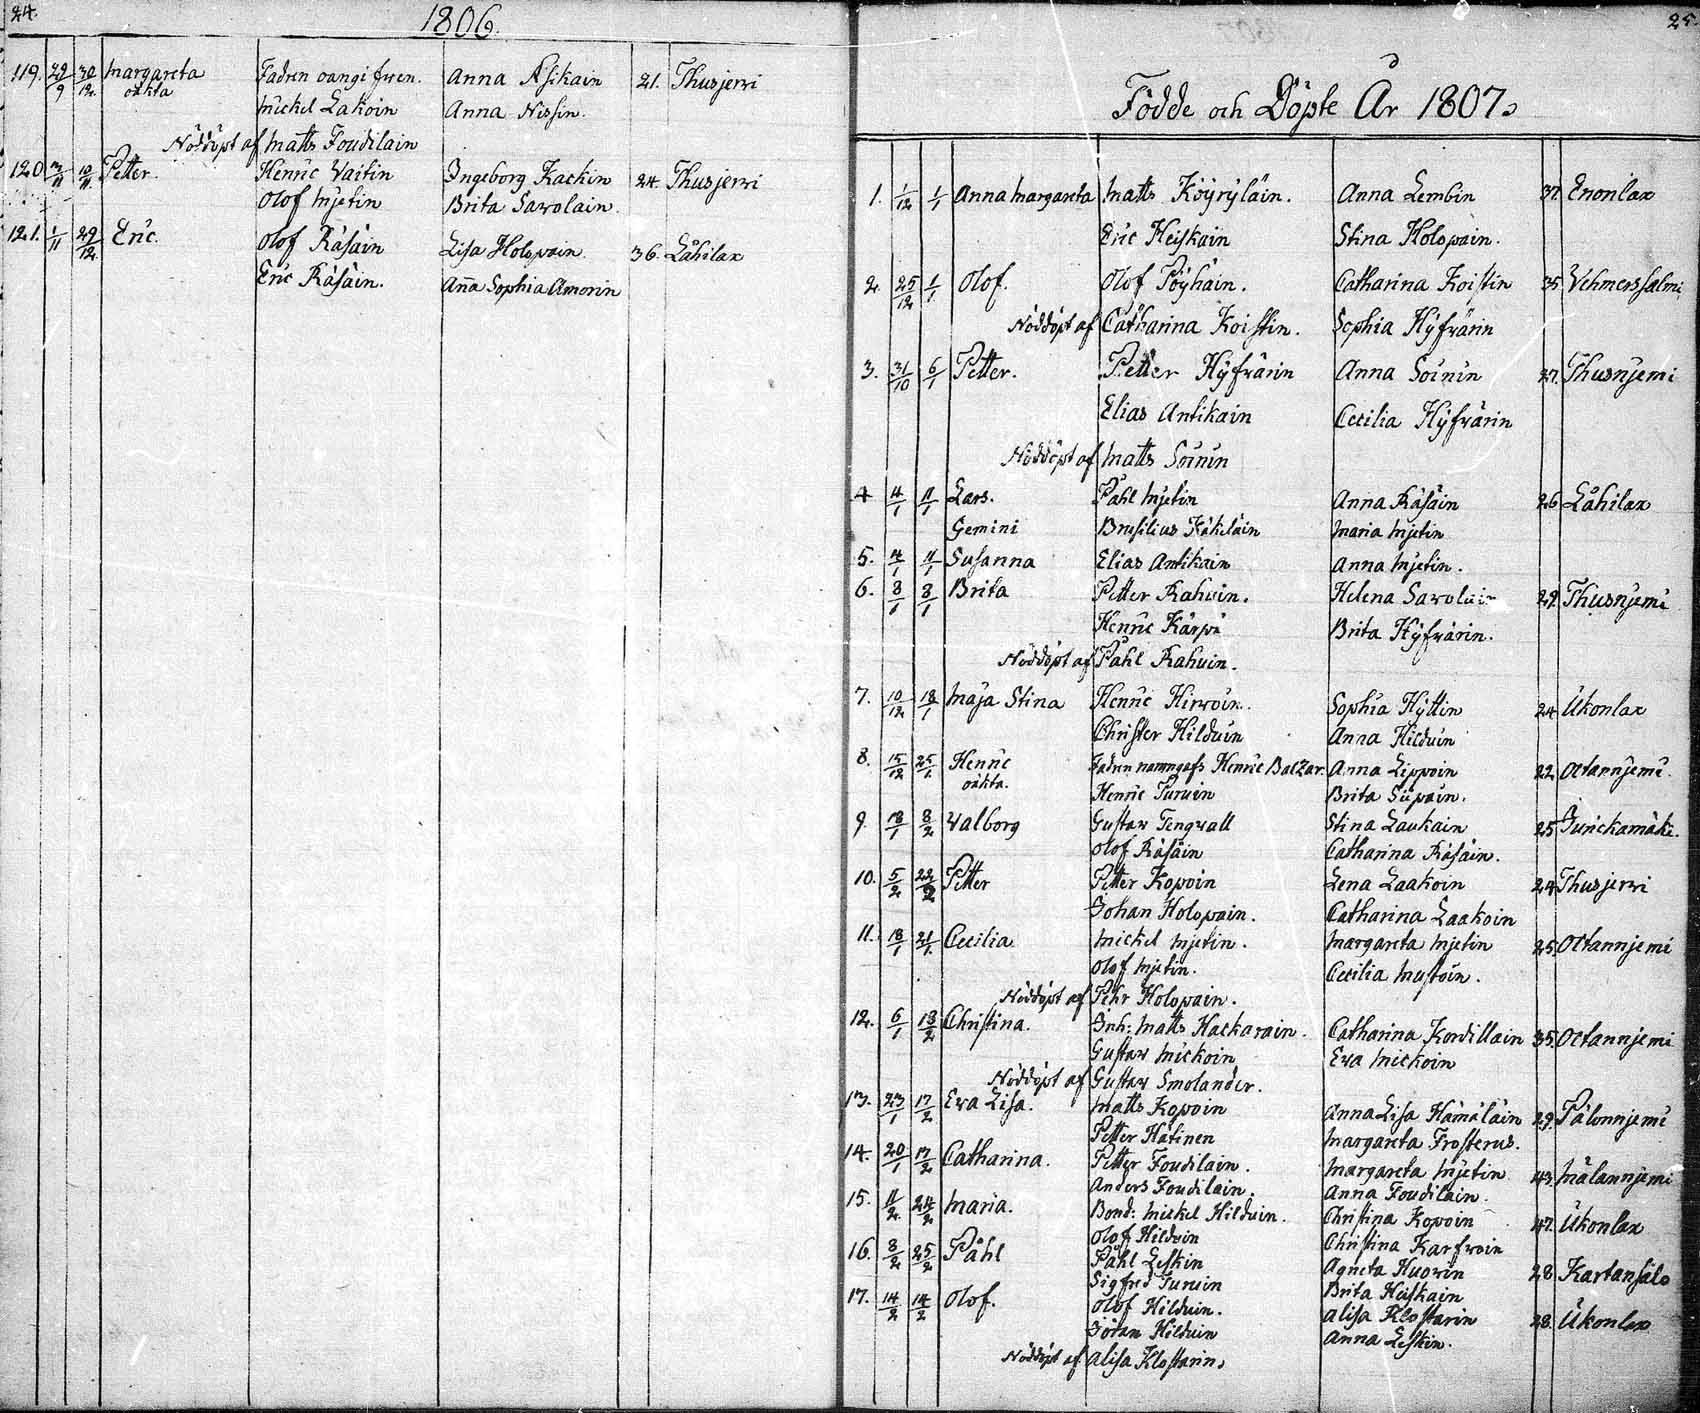 24.
1806.
119. 29/9 30/12 Margareta Fadren oangifwen. Anna Asikain 21. Thusjerwi
oäkta Mickel Lakoin Anna Nissin.
Nöddöpt af Matts Foudilain
120 3/11 10/11 Petter. Henric Vaitin Ingeborg Kackin 24. Thusjerwi
Olof Mjetin Brita Sawolain.
121. 1/11 29/12 Eric. Olof Räsäin Lisa Holopain. 36. Låhilax
Eric Räsäin. Anna Sophia Amorin
25.
Födde och Döpte År 1807.
1. 1/12 1/1 Anna Margareta Matts Köyryläin. Anna Lembin 37. Enonlax
Eric Heiskain Stina Holopain.
2. 25/12 1/1 Olof. Olof Pöyhäin. Catharina Koistin 35. Vehmerssalmi
Nöddöpt af Catharina Koistin. Sophia Hyfvärin
3. 31/10 6/1 Petter. Petter Hyfvärin Anna Soinin 27. Thusnjemi
Elias Antikain Cecilia Hyfvärin
Nöddöpt af Matts Soinin
4 4/1 11/1 Lars. Påhl Mjetin Anna Räsäin 26 Låhilax
Gemini Brusilius Käkeläin Maria Mjetin
5. 4/1 11/1 Susanna Elias Antikain Anna Mjetin.
6. 8/1 8/1 Brita Petter Rahuin. Helena Sawolain 29. Thusnjemi
Henric Kärpä Brita Hyfvärin.
Nöddöpt af Påhl Rahuin.
7. 10/12 18/1 Maja Stina Henric Hirwoin. Sophia Hyttin 24 Ukonlax
Christer Hilduin Anna Hilduin
8. 15/12 25/1 Henric Fadren namngafs Henric Balzar. Anna Lippoin 22 Octannjemi.
oäkta. Henric Turuin Brita Siipain.
9. 18/1 8/2 Valborg Gustaw Tengvall Stina Laukain 25 Jurickamäki.
Olof Räsäin Catharina Räsäin.
10. 5/2 22/2 Petter Petter Kopoin Lena Laakoin 24 Thusjerwi
Johan Holopain. Catharina Laakoin
11. 18/1 21/1. Cecilia Mickel Mjetin. Margareta Mjetin 25. Octannjemi
Olof Mjetin. Cecilia Mustoin.
Nöddöpt af Pehr Holopain.
12. 6/1 18/2 Christina. Inh: Matts Hackarain. Catharina Kordillain 35. Octannjemi
Gustaw Mickoin Eva Mickoin
Nöddöpt af Gustaw Smolander.
13. 23/1 17/2 Eva Lisa. Matts Kopoin Anna Lisa Hämäläin 29. Pälonnjemi
Petter Hatinen Margareta Frosterus.
14. 20/1 17/2 Catharina. Petter Foudilain. Margareta Mjetin 43. Mälannjemi
Anders Foudilain. Anna Foudilain.
15. 11/2 24/2 Maria. Bond: Mickel Hilduin. Christina Kopoin 47. Ukonlax
Olof Hilduin Christina Karfwoin
16. 8/2 25/2 Påhl Påhl Leskin Agneta Huowin 28 Kartansalo
Sigfred Turuin Brita Heiskain
17. 14/2 14/2 Olof. Olof Hilduin. Alisa Klostarin 28. Ukonlax
Jöran Hilduin Anna Leskin.
Nöddöpt af Alisa Klostarin.